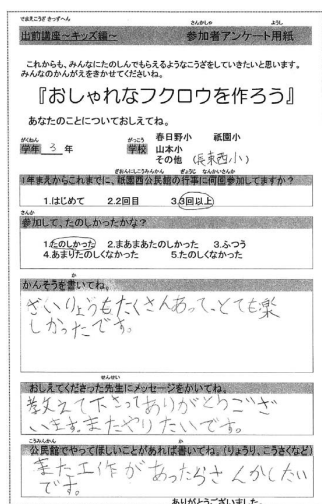 でまえこうざ きっずへん
出前講座～キッズ編～
さんかしゃ ようし
参加者アンケート用紙
これからも、みんなにたのしんでもらえるようなこうざをしていきたいと思います。
みんなのかんがえをきかせてくださいね。
『おしゃれなフクロウを作ろう』
あなたのことについておしえてね。
がくねん
学年 3 年
がっこう
学校 春日野小 祇園小
山本小
その他 (長束西小)
ぎおんにしこうみんかん ぎょうじ なんかいさんか
1年まえからこれまでに、祇園西公民館の行事に何回参加してますか?
1.はじめて 2.2回目 3.3回以上
さんか
参加して、たのしかったかな?
1.たのしかった 2.まあまあたのしかった 3.ふつう
4.あまりたのしくなかった 5.たのしくなかった
か
かんそうを書いてね。
ざいりょうもたくさんあって、とても楽
しかったです。
せんせい
おしえてくださった先生にメッセージをかいてね。
教えて下さってありがとうござ
います。またやりたいです。
こうみんかん か
公民館でやってほしいことがあれば書いてね。(りょうり、こうさくなど)
また工作があったらさんかしたい
です。
ありがとうございました。